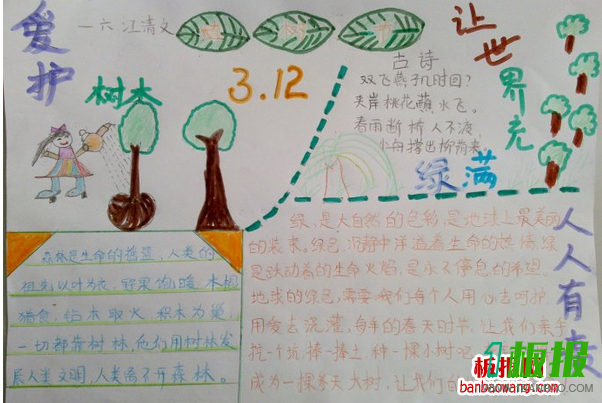 爱护
树木
一六 江清文
植 树 节
3.12
让世界充
绿满
古诗
双飞燕子几时回?
夹岸桃花蘸水飞。
春雨断桥人不渡
小舟撑出柳荫来。
人人有责
森林是生命的摇篮,人类的
祖先以叶为衣,野果饱腹,木棍
捕食,钻木取火,积木为巢,
一切都靠树林,他们用树林发
展人类文明,人类离不开森林。
绿,是大自然的色彩,是地球上最美丽
的装束。绿色,沉静中洋溢着生命的
是跃动着的生命火焰,是永不停息的希望。
地球的绿色,需要我们每个人用心去呵护,
用爱去浇灌,每年的春天时节,让我们亲手
挖一个坑,捧一捧土,种一棵小树吧
成为一棵参天大树,让我们的
板报网
banbaowang.com
板报
WWW.BANBAO.COM